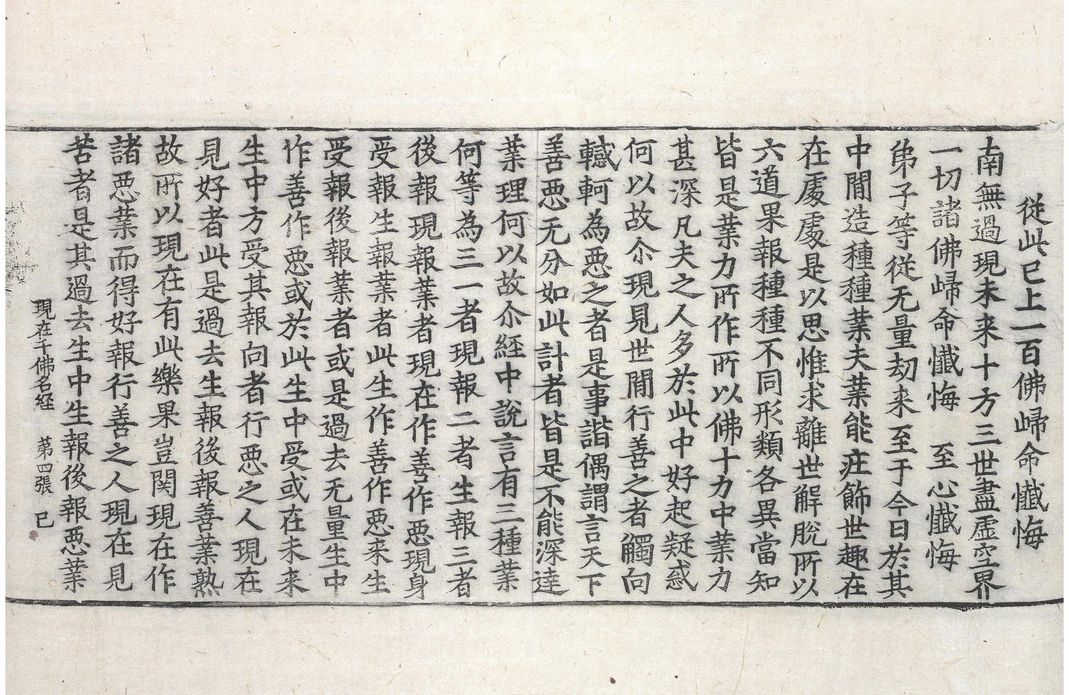 從此已上一百佛㱕命懺悔
南無過現未来十方三世盡虛空界
一切諸佛㱕命懺悔　至心懺悔
弟子等從无量劫来至于今日於其
中閒造種種業夫業能疘飾世趣在
在處處是以思惟求離世解脫所以
六道果報種種不同形類各異當知
皆是業力所作所以佛十力中業力
甚深凡夫之人多於此中好起疑惑
何以故尒現見世閒行善之者觸向
轗軻為惡之者是事諧偶謂言天下
善惡无分如此計者皆是不能深達
業理何以故尒經中說言有三種業
何等為三一者現報二者生報三者
後報現報業者現在作善作惡現身
受報生報業者此生作善作惡来生
受報後報業者或是過去无量生中
作善作惡或於此生中受或在未来
生中方受其報向者行惡之人現在
見好者此是過去生報後報善業熟
故所以現在有此樂果豈関現在作
諸惡業而得好報行善之人現在見
苦者是其過去生中生報後報惡業
現在千佛名経　第四張　已